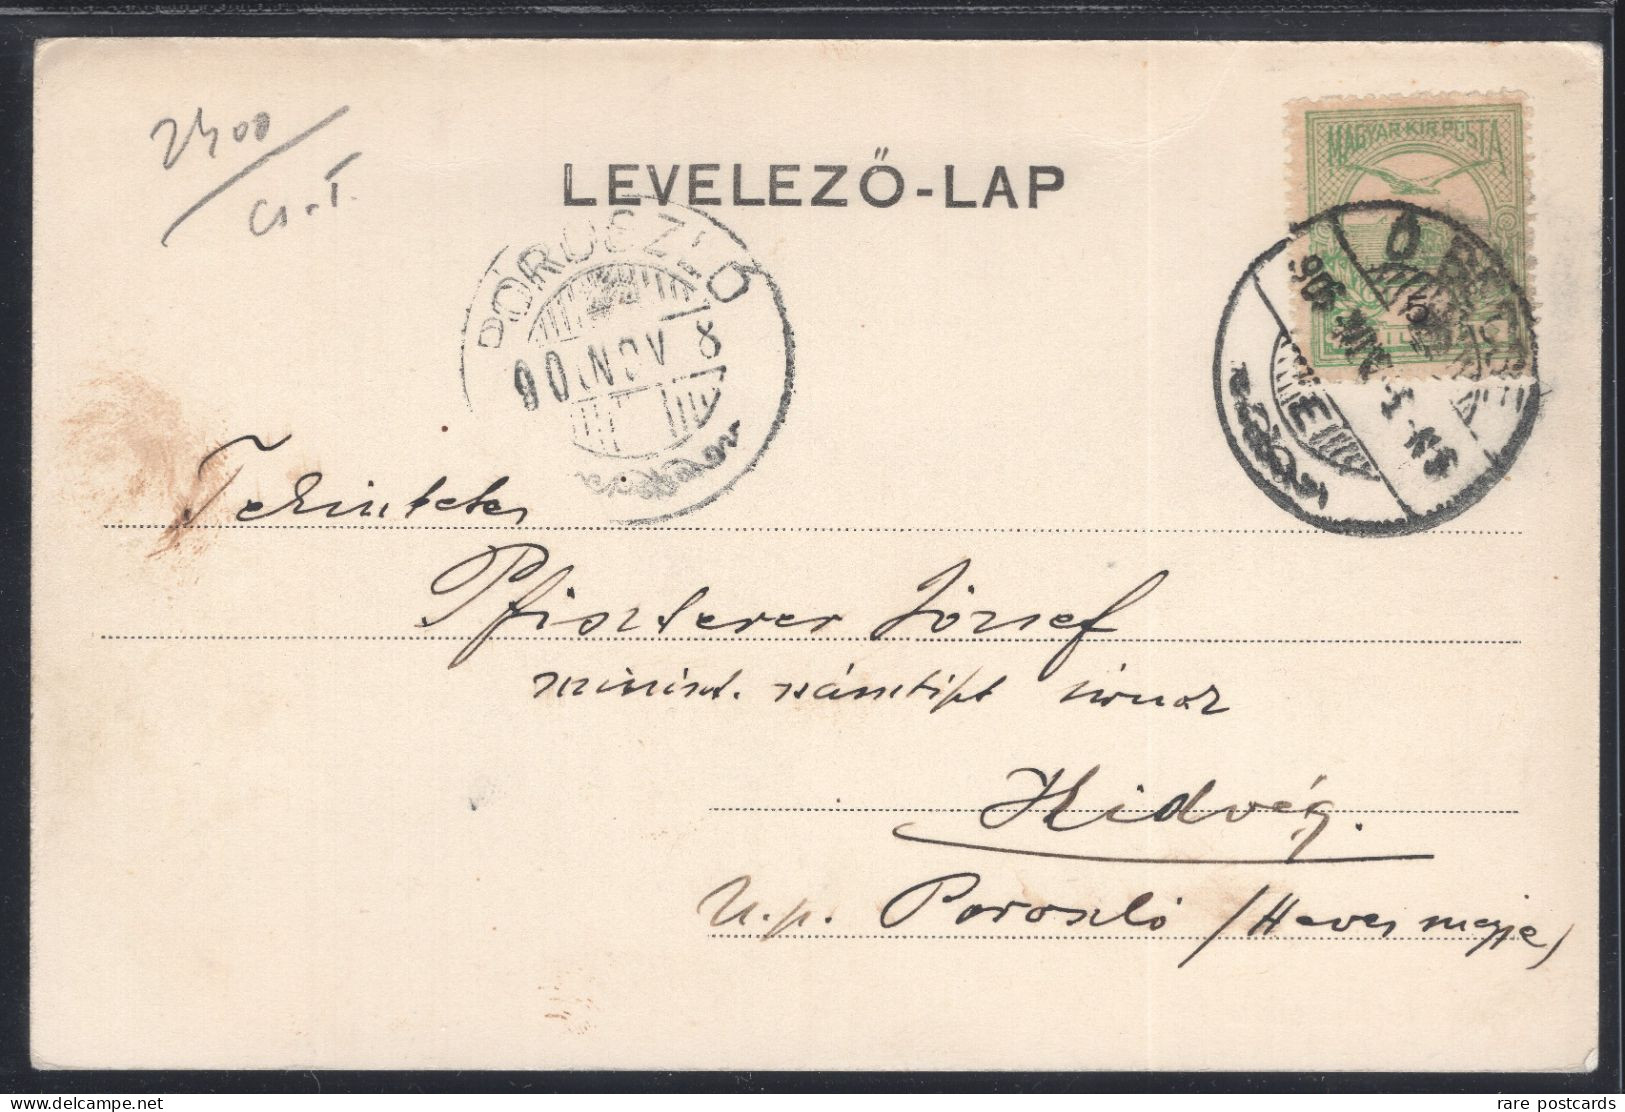 2400
Cs. T.
LEVELEZŐ-LAP
MAGYAR KIR. POSTA
5
POROSZLÓ
NOV 8
Ó
906
Tekintetes
Pfiszterer József
miniszt. számtiszt úrnak
Hidvég.
U. p. Poroszló /Heves megye/
rare postcards